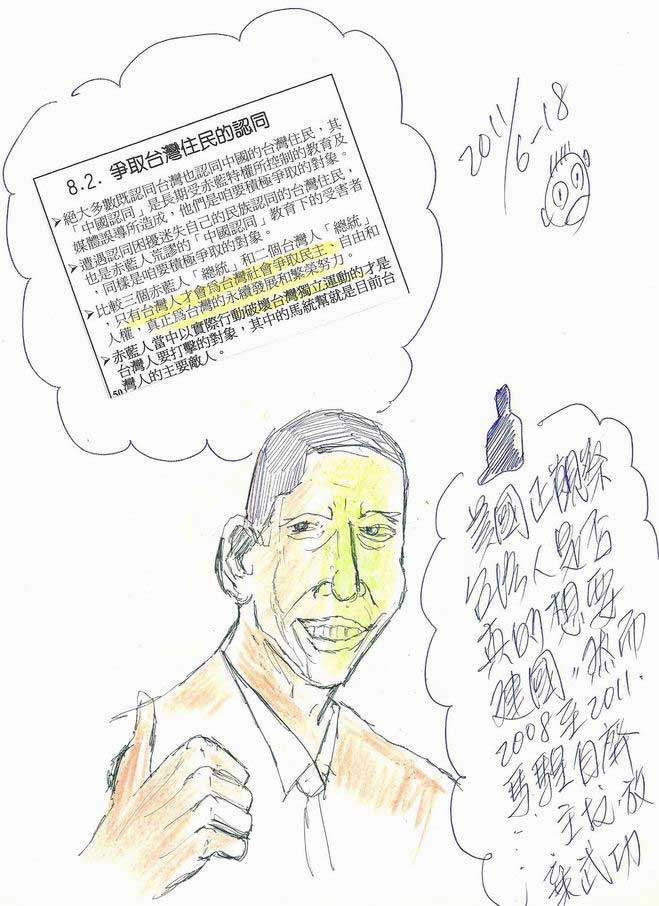 8.2. 爭取台灣住民的認同
➢絕大多數既認同台灣也認同中國的台灣住民，其
「中國認同」是長期受赤藍特權所控制的教育及
媒體誤導所造成，他們是咱要積極爭取的對象。
➢遭遇認同困擾迷失自己的民族認同的台灣住民，
也是赤藍人荒謬的「中國認同」教育下的受害者
，同樣是咱要積極爭取的對象。
➢比較三個赤藍人「總統」和二個台灣人「總統」
，只有台灣人才會為台灣社會爭取民主、自由和
人權，真正為台灣的永續發展和繁榮努力。
➢赤藍人當中以實際行動破壞台灣獨立運動的才是
台灣人要打擊的對象，其中的馬統幫就是目前台
灣人的主要敵人。
50
2011/6-18
美國正觀察
台灣人是否
真的想要
建國〃然而
2008至2011.
馬騜自
主投放
棄武功